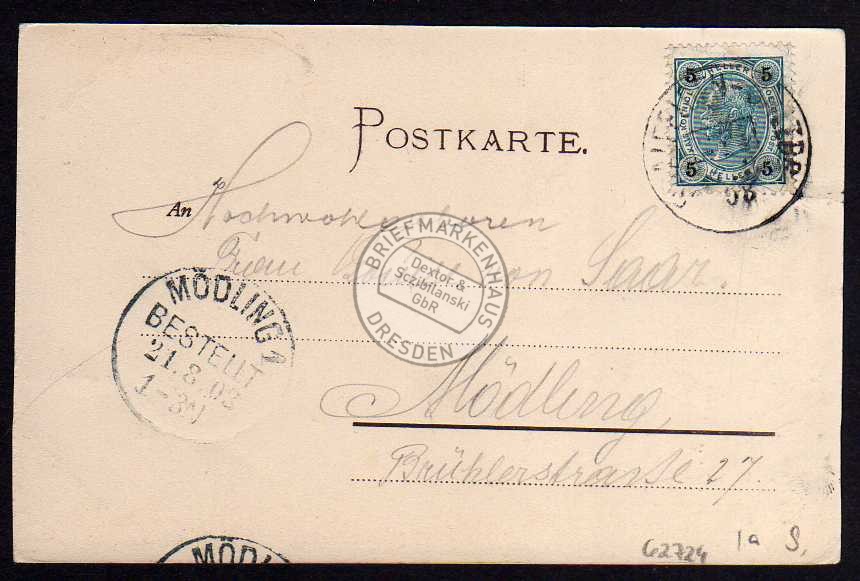 5 HELLER 5
5 HELLER 5
POSTKARTE.
An Hochwohlgeboren
Frau von Saar.
BRIEFMARKENHAUS
Dextor &
Sczibilanski
GbR
DRESDEN
MÖDLING 1
BESTELLT
21.8.03
Mödling,
Brühlerstrasse 27.
62724 1a S.
MÖDL